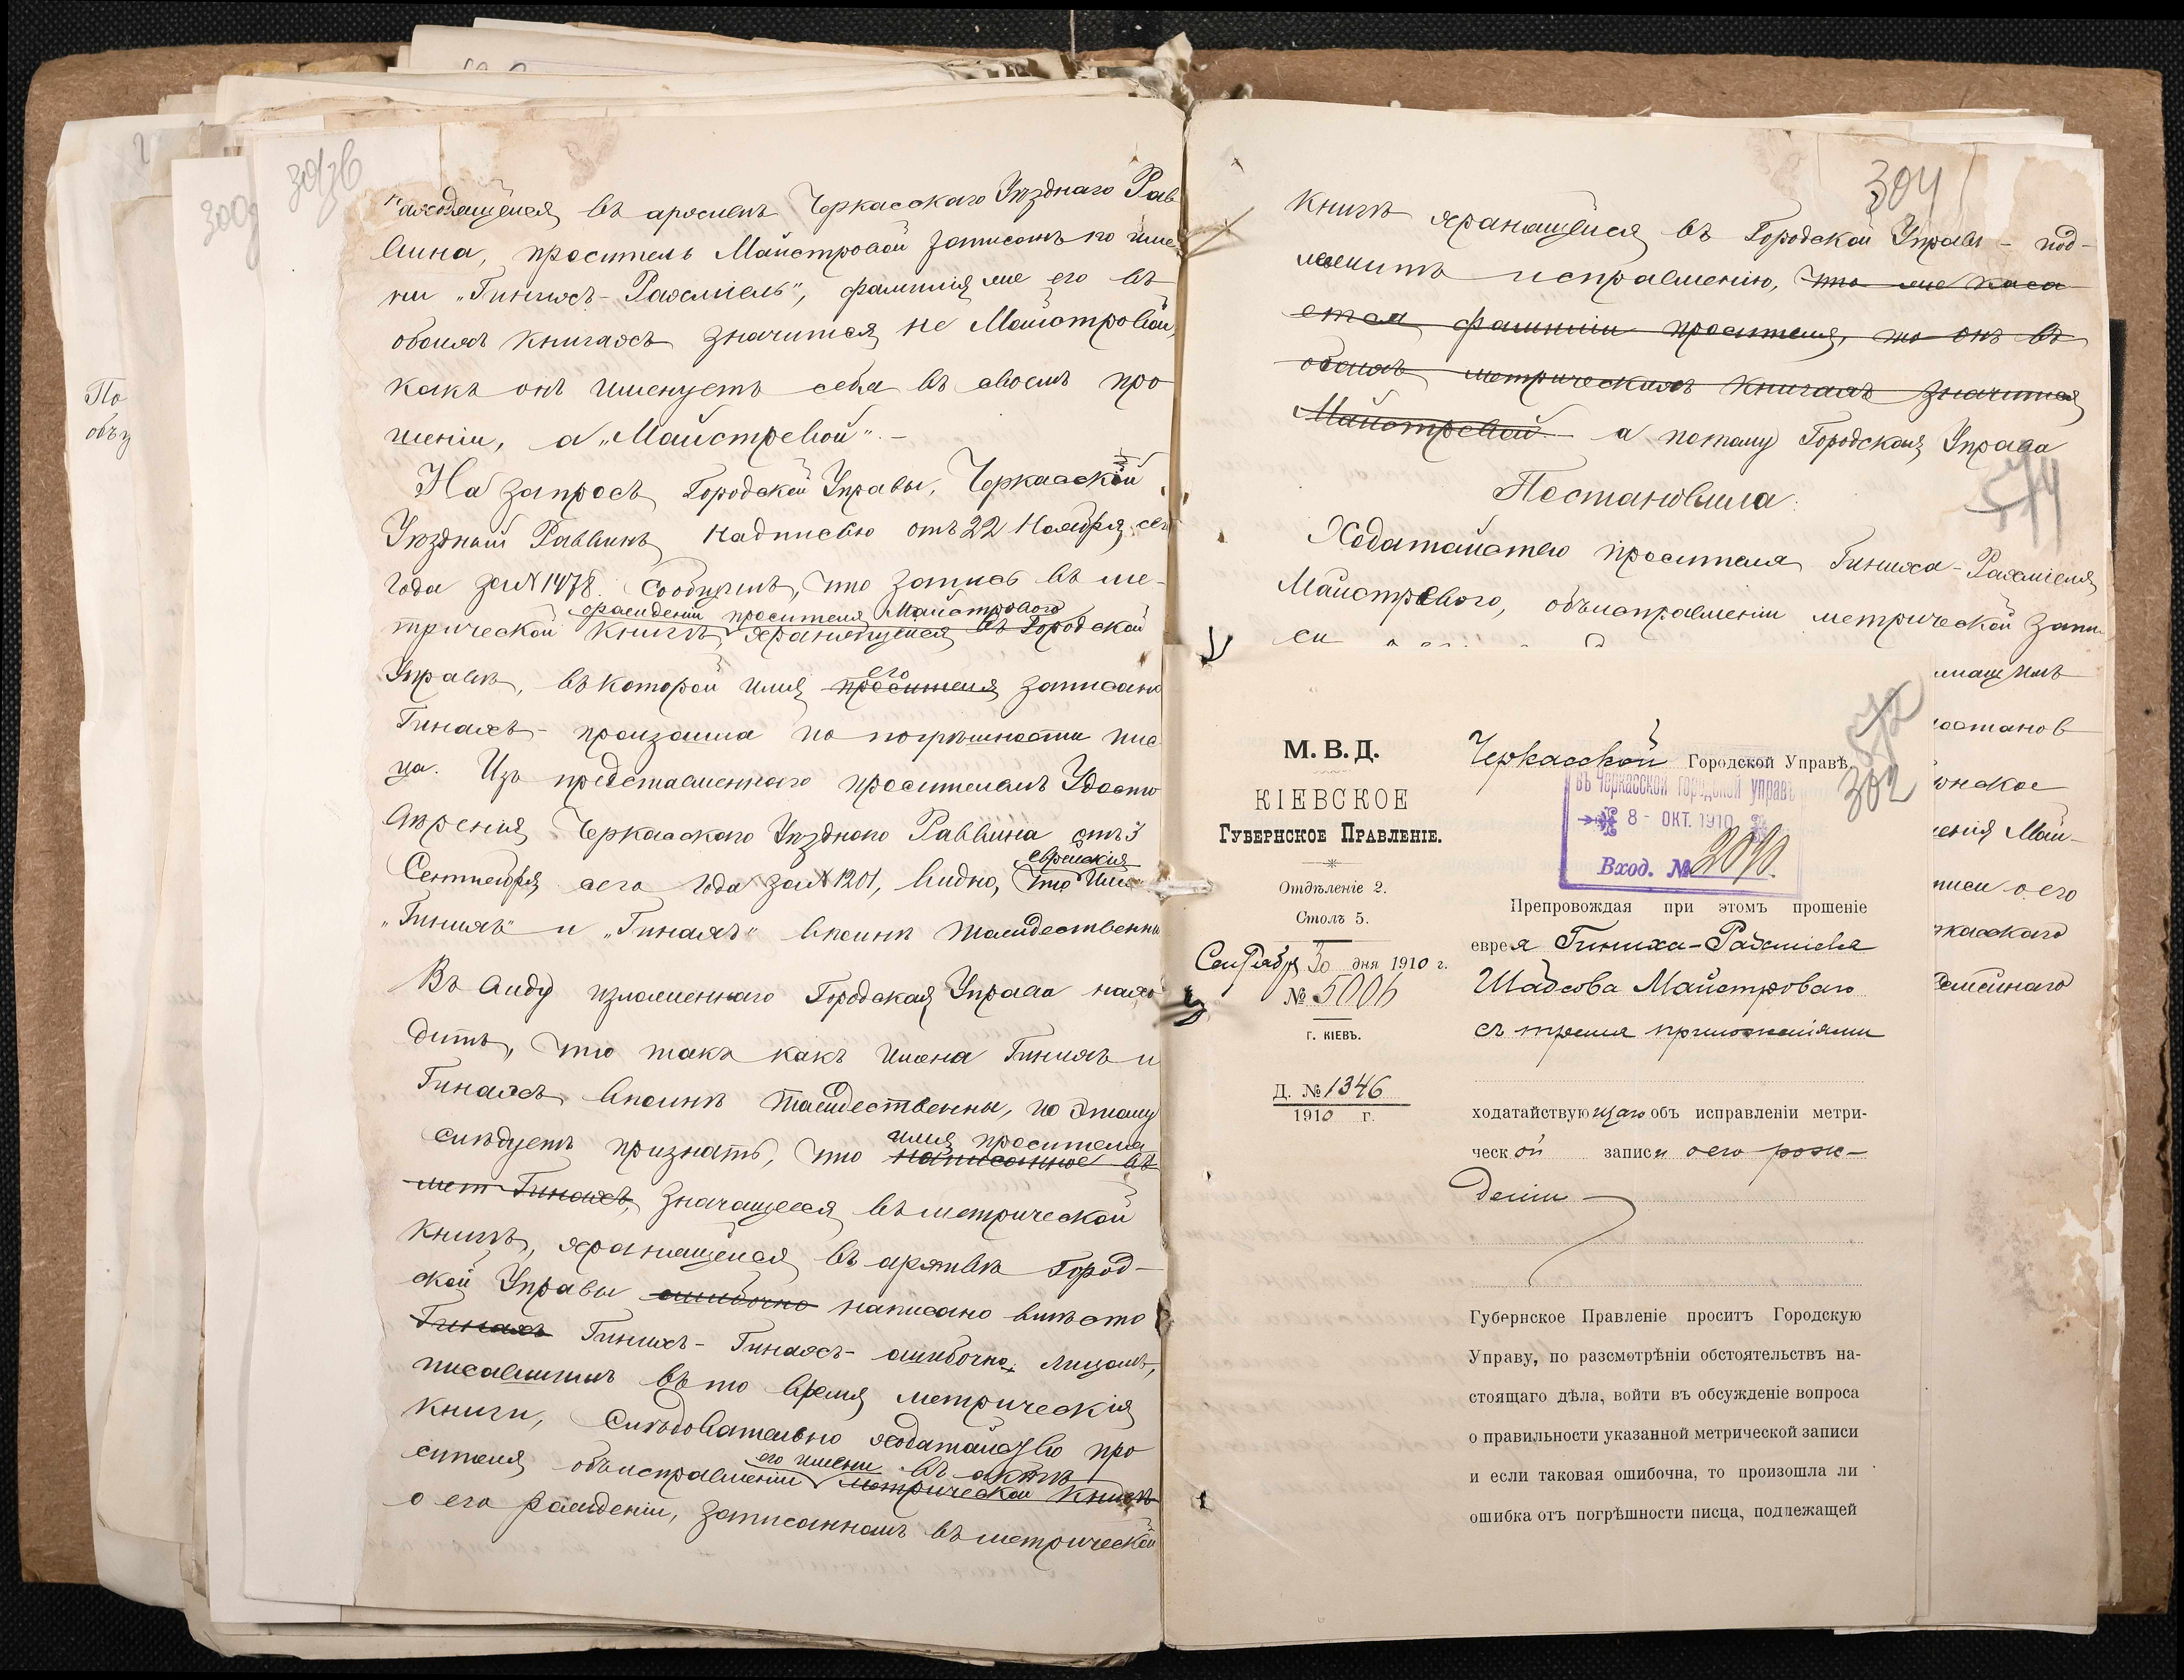 303об
300
По
объ
находящейся въ архивѣ Черкасскаго Уѣзднаго Рав
вина, проситель Майстровой записанъ по име
ни „Гинихъ-Рахміель", фамилія же его въ
обоихъ книгахъ значится не Майстровой,
какъ онъ именуетъ себя въ своемъ про
шеніи, а „Майстревой".-
На запросъ Городской Управы, Черкасскій
Уѣздный Раввинъ надписью отъ 22 Ноября сего
года за № 1478. сообщилъ, что запись въ ме-
рожденіи просителя Майстроваго
трической книгѣ, хранящейся въ Городской
Управѣ, въ которой имя просителя его записано
Гинахъ- произошла по погрѣшности пис
ца. Изъ представленнаго просителемъ Удосто
вѣренія Черкасскаго Уѣзднаго Раввина отъ 3
Сентября сего года за № 1201, видно, что еврейскія Имена
„Гинихъ" и „Гинахъ" вполнѣ тождественны
Въ виду изложеннаго Городская Управа нахо
дитъ, что такъ какъ имена Гинихъ и
Гинахъ вполнѣ тождественны, по этому
слѣдуетъ признать, что написанное въ имя просителя
мет Гинахъ, значащееся въ метрической
книгѣ, хранящейся въ архивѣ Город-
ской Управы ошибочно написано вмѣсто
Гинахъ Гинихъ- Гинахъ- ошибочно, лицомъ,
писавшимъ въ то время метрическія
книги, слѣдовательно ходатайство про
сителя объ исправленіи его имени въ актѣ метрической книгѣ
о его рожденіи, записанномъ въ метрической
304
книгѣ хранящейся въ Городской Управѣ - под-
лежитъ исправленію, что же каса
ется фамиліи просителя, то онъ въ
обоихъ метрическихъ книгахъ значится
Майстревой а потому Городская Управа
574
Постановила:
Ходатайство просителя Гиниха-Рахміеля
Майстрового, объ исправленіи метрической запи
си
постанов
Май-
писи о его
М. В. Д.
КІЕВСКОЕ
ГУБЕРНСКОЕ ПРАВЛЕНІЕ.
Отдѣленіе 2.
Столъ 5.
Сентября 30 дня 1910 г.
№ 5006
г. КІЕВЪ.
Д. № 1346
1910 г.
572
302
Черкасской Городской Управѣ.
въ Черкасской городской управѣ
8 - ОКТ. 1910
Вход. №
Препровождая при этомъ прошеніе
еврея Гиниха-Рахміеля
Шадсова Майстроваго
съ тремя приложеніями
ходатайствующаго объ исправленіи метри-
ческой записи о его рож-
деніи
Губернское Правленіе проситъ Городскую
Управу, по разсмотрѣніи обстоятельствъ на-
стоящаго дѣла, войти въ обсужденіе вопроса
о правильности указанной метрической записи
и если таковая ошибочна, то произошла ли
ошибка отъ погрѣшности писца, подлежащей